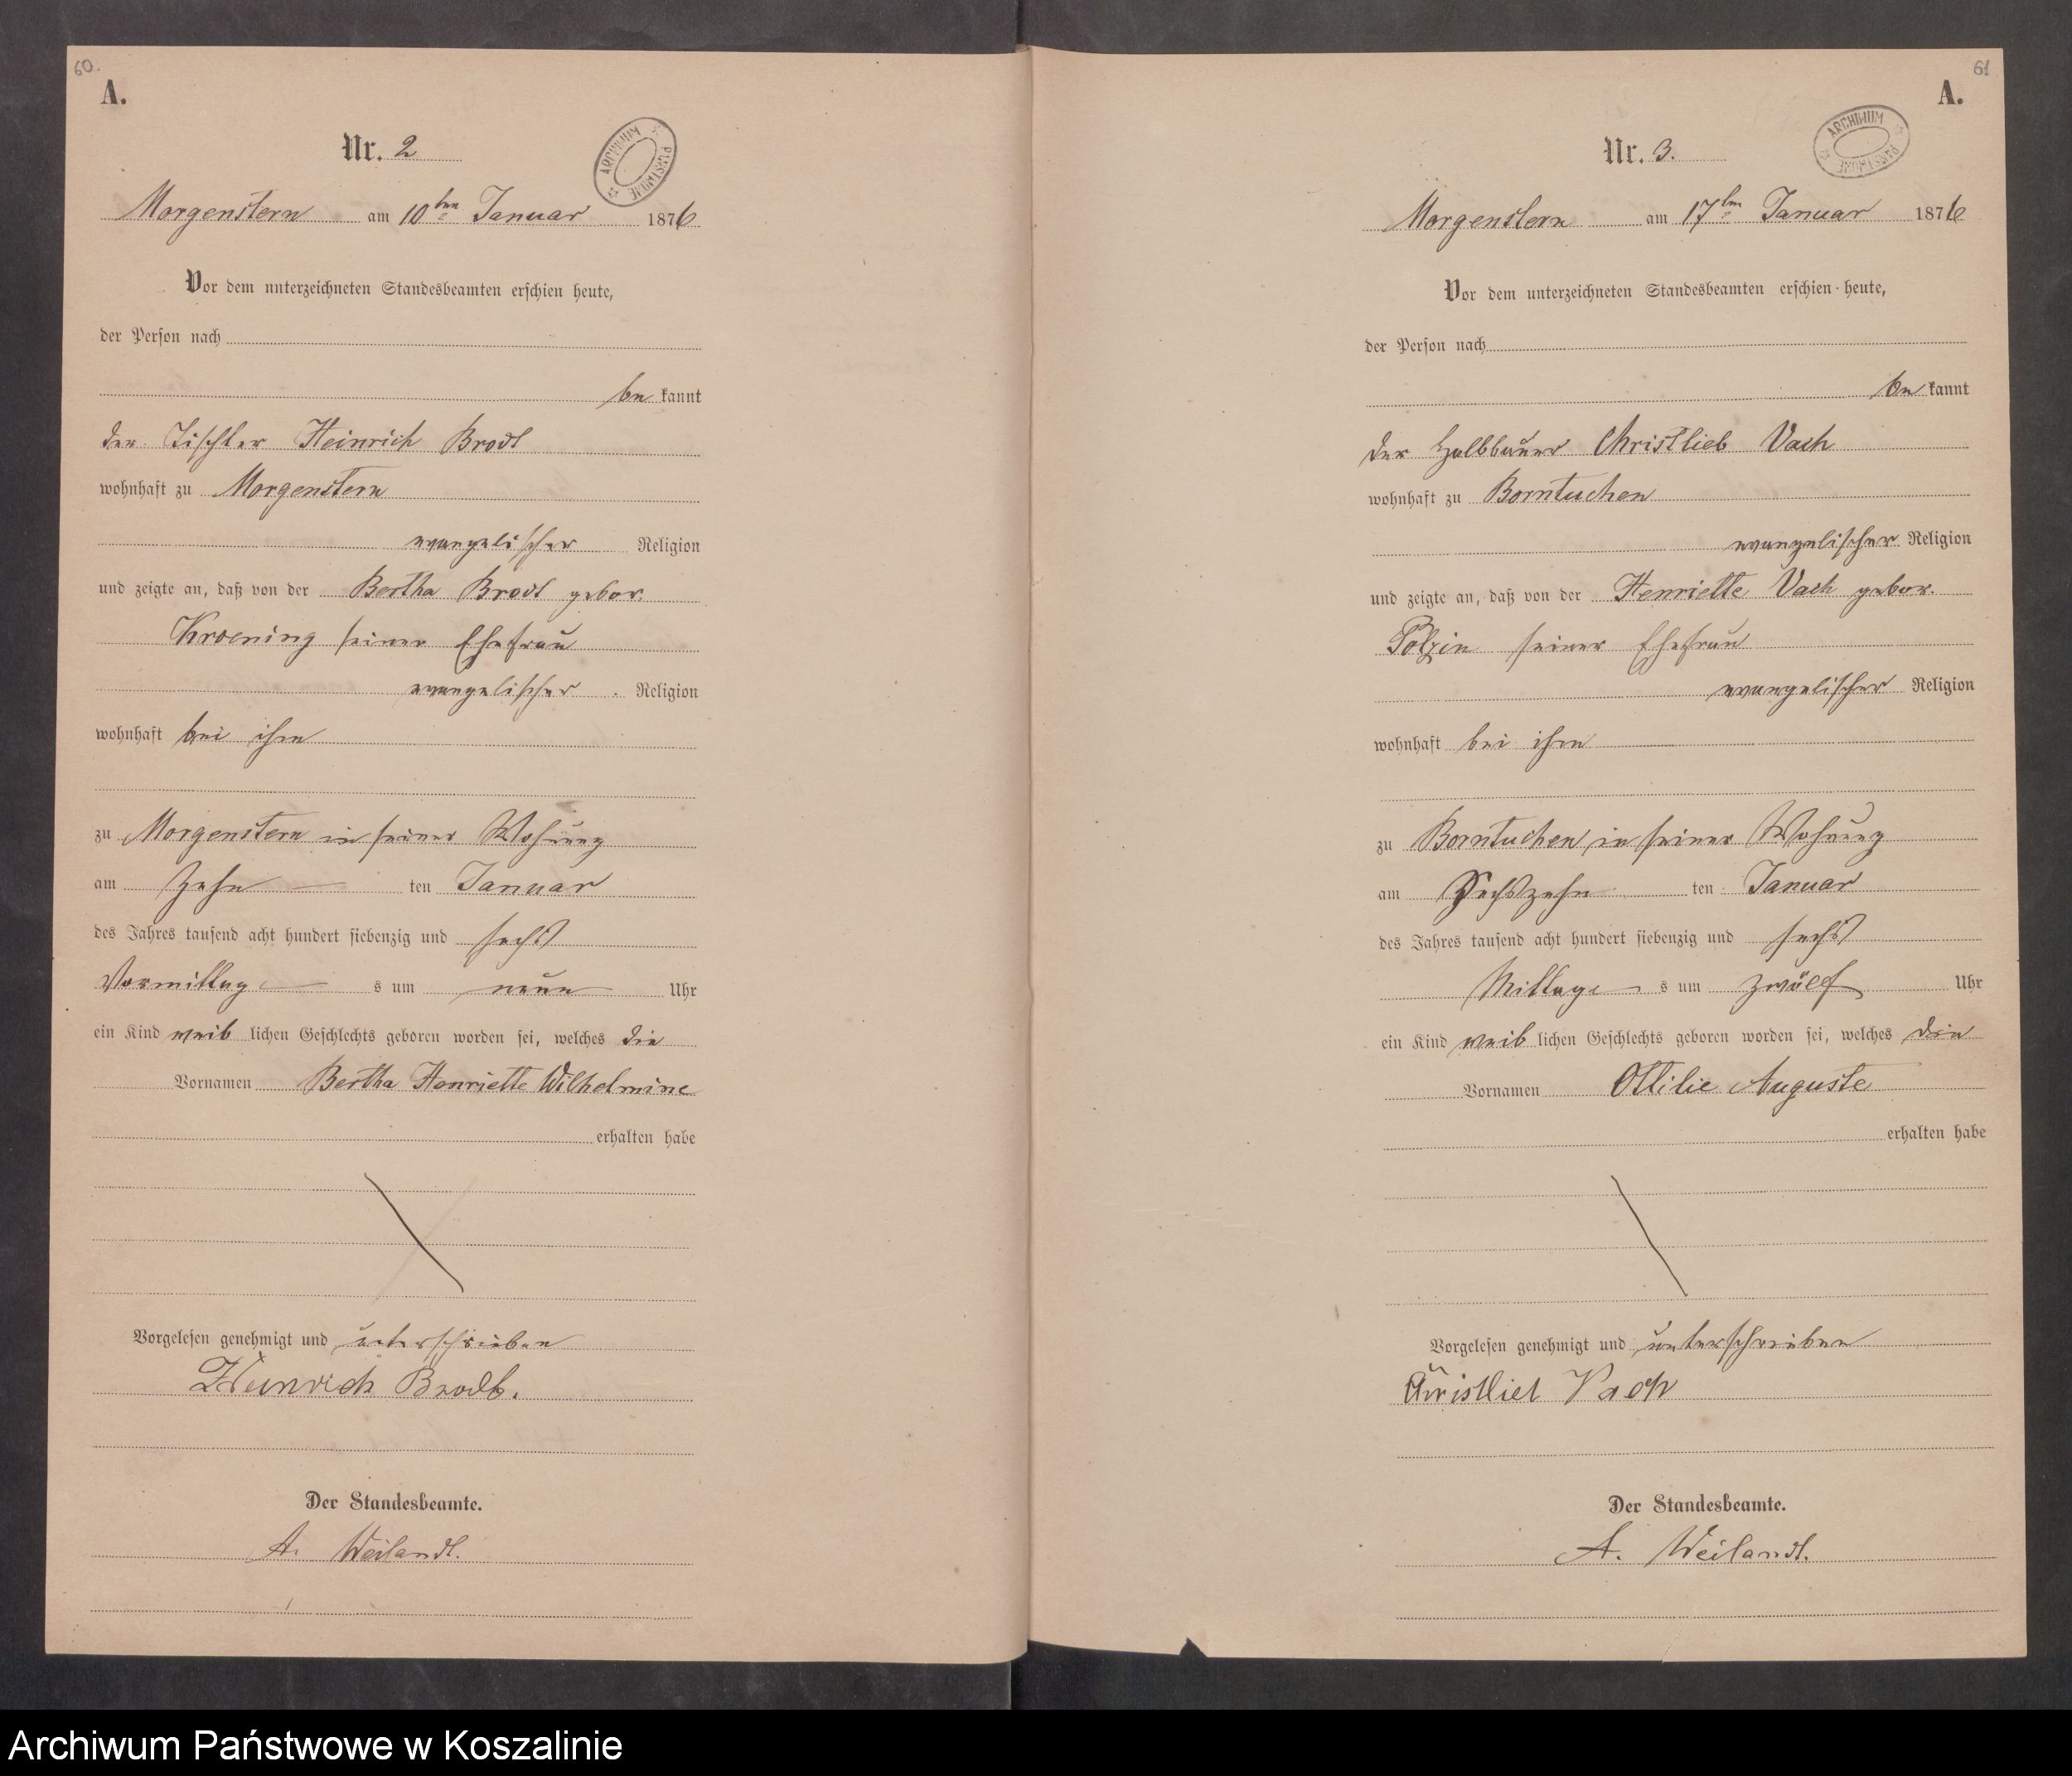 60.
A.
ARCHIWUM PAŃSTWOWE
Nr. 2
Morgenstern am 10ten Januar 1876
Vor dem unterzeichneten Standesbeamten erschien heute,
der Person nach
be kannt
der Tischler Heinrich Brodt
wohnhaft zu Morgenstern
evangelischer Religion
und zeigte an, daß von der Bertha Brodt gebor.
Kroening seiner Ehefrau
evangelischer Religion
wohnhaft bei ihm
zu Morgenstern in seiner Wohnung
am Zehn ten Januar
des Jahres tausend acht hundert siebenzig und sechs
Vormittag s um neun Uhr
ein Kind weib lichen Geschlechts geboren worden sei, welches die
Vornamen Bertha Henriette Wilhelmine
erhalten habe
Vorgelesen genehmigt und unterschrieben
Heinrich Brodt.
Der Standesbeamte.
A. Weilandt.
61
A.
ARCHIWUM PAŃSTWOWE
Nr. 3.
Morgenstern am 17ten Januar 1876
Vor dem unterzeichneten Standesbeamten erschien heute,
der Person nach
be kannt
der Halbbauer Christlieb Vach
wohnhaft zu Borntuchen
evangelischer Religion
und zeigte an, daß von der Henriette Vach gebor.
Polzin seiner Ehefrau
evangelischer Religion
wohnhaft bei ihm
zu Borntuchen in seiner Wohnung
am Sechszehn ten Januar
des Jahres tausend acht hundert siebenzig und sechs
Mittag s um zwölf Uhr
ein Kind weib lichen Geschlechts geboren worden sei, welches die
Vornamen Ottilie Auguste
erhalten habe
Vorgelesen genehmigt und unterschrieben
Christliel Vach
Der Standesbeamte.
A. Weilandt.
Archiwum Państwowe w Koszalinie